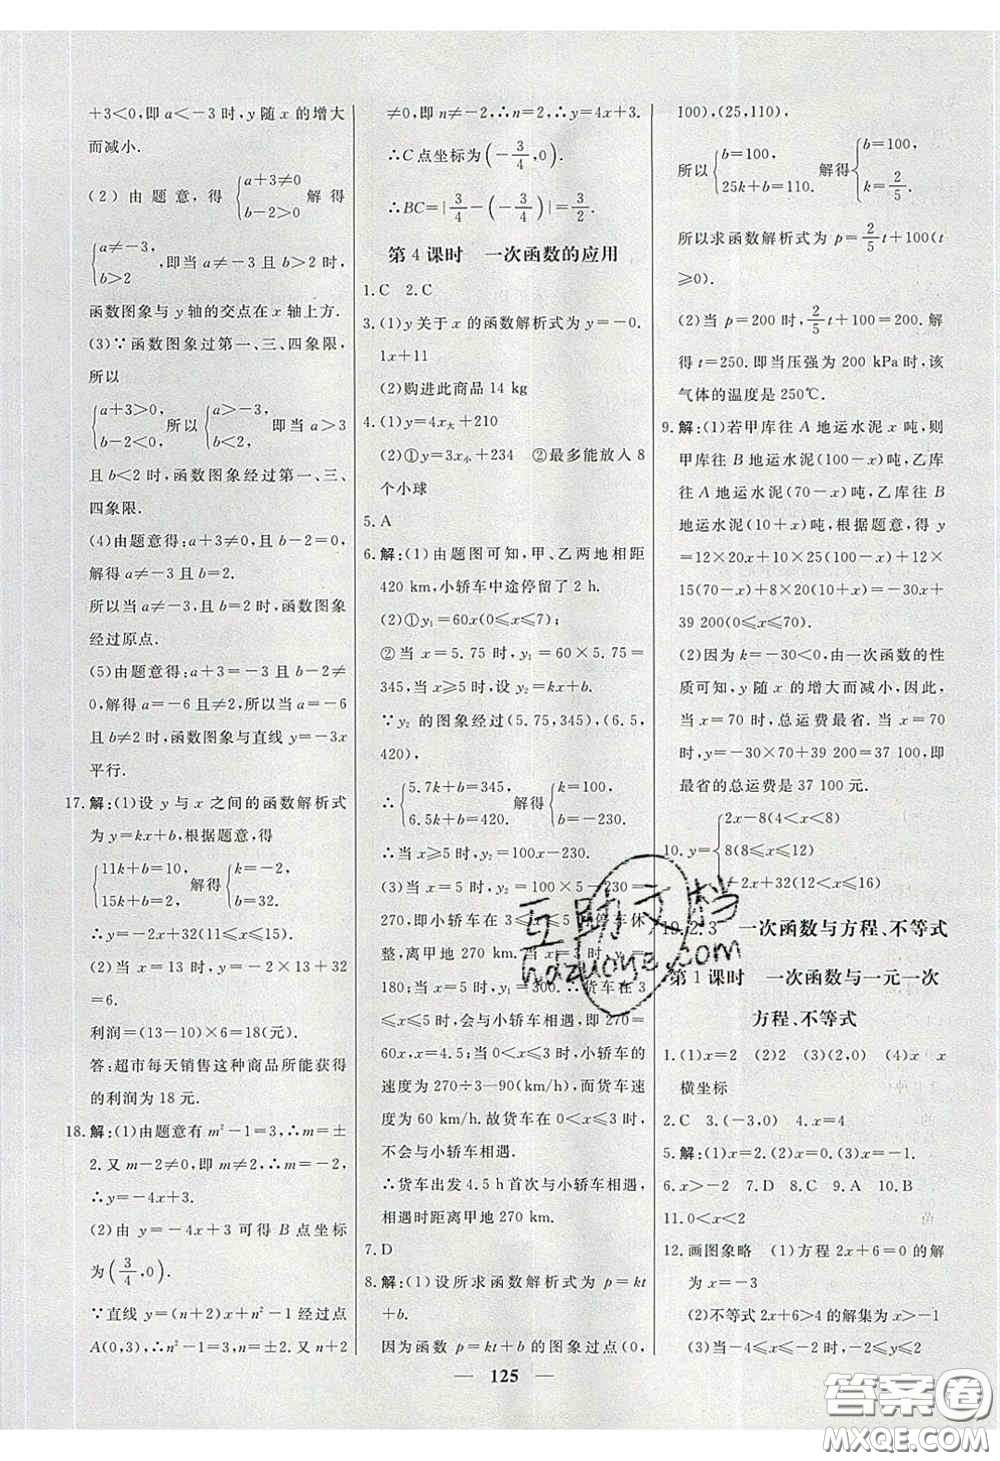 +3<0,即 a<-3 时,y随 x 的增大
而减小.
(2) 由题意,得 {a+3≠0 b-2>0 解得
{a≠-3, b>2 ,即当 a≠-3 且 b>2 时,
函数图象与 y轴的交点在 x 轴上方.
(3)∵函数图象过第一、三、四象限,
所以
{a+3>0, b-2<0, 所以 {a>-3, b<2, 即当 a>3
且 b<2 时,函数图象经过第一、三、
四象限.
(4)由题意得:a+3≠0,且b-2=0,
解得 a≠-3 且 b=2.
所以当 a≠-3,且 b=2 时,函数图象
经过原点.
(5)由题意得:a+3=-3 且 b-2≠
0,解得 a=-6 且≠2,所以当 a=-6
且 b≠2 时,函数图象与直线 y=-3x
平行.
17.解:(1)设 y 与 x 之间的函数解析式
为 y=kx+b,根据题意,得
{11k+b=10, 15k+b=2, 解得 {k=-2, b=32.
∴y=-2x+32(11≤x≤15)
(2)当 x=13 时,y=-2×13+32
=6.
利润=(13-10)×6=18(元).
答:超市每天销售这种商品所能获得
的利润为 18 元.
18.解:(1)由题意有 m²-1=3,∴m=±
2.又 m-2≠0,即 m≠2,∴m=-2,
∴y=-4x+3.
(2)由 y=-4x+3 可得 B 点坐标
为(3/4,0).
∵直线 y=(n+2)x+n²-1 经过点
A(0,3),∴n²-1=3,n=±2.又 n+2
≠0,即 n≠-2,∴n=2,∴y=4x+3.
∴C点坐标为(-3/4,0).
∴BC=|3/4-(-3/4)|=3/2.
第 4 课时 一次函数的应用
1.C 2.C
3.(1)y 关于 x 的函数解析式为 y=-0.
1x+11
(2)购进此商品 14 kg
4.(1)y=4x大+210
(2)①y=3x小+234 ②最多能放入 8
个小球
5.A
6.解:(1)由题图可知,甲、乙两地相距
420 km,小轿车中途停留了 2 h.
(2)①y₁=60x(0≤x≤7);
②当 x=5.75 时,y₁=60×5.75=
345,当 x≥5 时,设 y₂=kx+b.
∵y₂ 的图象经过(5.75,345),(6.5,
420),
∴{5.7k+b=345, 6.5k+b=420. 解得{k=100, b=-230.
∴当 x≥5 时,y₂=100x-230.
(3)当 x=5 时,y₂=100×5-230=
270.即小轿车在 3
整,离甲地 270
180;当 x=5 时,y₁=300.∴货车在 3
≤x≤5 时,会与小轿车相遇,即 270=
60x,x=4.5;当 0<x≤3 时,小轿车的
速度为 270÷3-90(km/h),而货车速
度为 60 km/h,故货车在 0<x≤3 时,
不会与小轿车相遇.
∴货车出发 4.5 h首次与小轿车相遇,
相遇时距离甲地 270 km.
7.D
8.解:(1)设所求函数解析式为 p=kt
+b.
因为函数 p=kt+b 的图象过点(0,
100),(25,110),
所以{b=100, 25k+b=110. 解得{b=100, k=2/5.
所以求函数解析式为 p=2/5t+100(t
≥0).
(2)当 p=200 时,2/5t+100=200.解
得 t=250.即当压强为 200 kPa 时,该
气体的温度是 250℃.
9.解:(1)若甲库往 A 地运水泥 x 吨,则
甲库往 B 地运水泥(100-x)吨,乙库
往 A 地运水泥(70-x)吨,乙库往 B
地运水泥(10+x)吨,根据题意,得 y
=12×20x+10×25(100-x)+12×
15(70-x)+8×20(10+x)=-30x+
39 200(0≤x≤70)
(2)因为 k=-30<0,由一次函数的性
质可知,y 随 x 的增大而减小,因此,
当 x=70 时,总运费最省.当 x=70
时,y=-30×70+39 200=37 100,即
最省的总运费是 37 100 元.
10.y={2x-8(4<x<8) 8(8≤x≤12) -2x+32(12<x≤16)
19.2.3 一次函数与方程、不等式
第 1 课时 一次函数与一元一次
方程、不等式
1.(1)x=2 (2)2 (3)(2,0) (4)x x
横坐标
2.C 3.(-3,0) 4.x=4
5.解:(1)x=2. (2)x=0. (3)x=-1.
6.x>-2 7.D 8.C 9.A 10.B
11.0<x<2
12.画图象略 (1)方程 2x+6=0 的解
为 x=-3
(2)不等式2x+6>4 的解集为 x>-1
(3)当-2≤y≤2 时,-4≤x≤-2
125
互助文档
hazuoye.com
答案圈
MXQE.COM